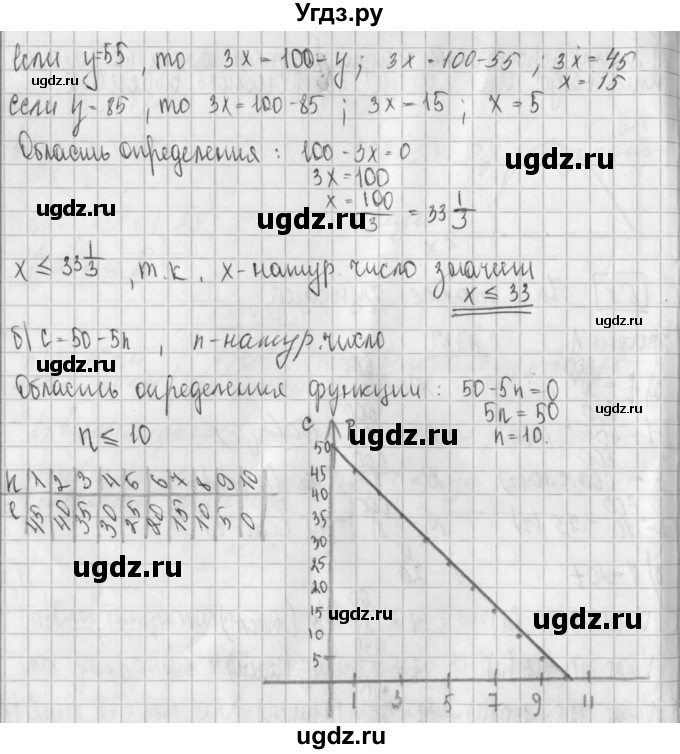 Угдз.ру
если y=55, то 3x=100-y; 3x=100-55; 3x=45
ugdz.ru
x=15
если y=85, то 3x=100-85; 3x=15; x=5
Область определения: 100-3x=0
ugdz.ru
3x=100
ugdz.ru
x=100/3=33 1/3
ugdz.ru
x≤33 1/3, т.к. x-натур. число значит
ugdz.ru
x≤33
б) c=50-5n, n-натур. число
ugdz.ru
Область определения функции: 50-5n=0
5n=50
ugdz.ru
n≤10
n=10.
c
ugdz.ru
50
n 1 2 3 4 5 6 7 8 9 10
45
c 45 40 35 30 25 20 15 10 5 0
40
35
30
ugdz.ru
25
20
15
ugdz.ru
ugdz.ru
10
5
ugdz.ru
1 3 5 7 9 11
ugdz.ru